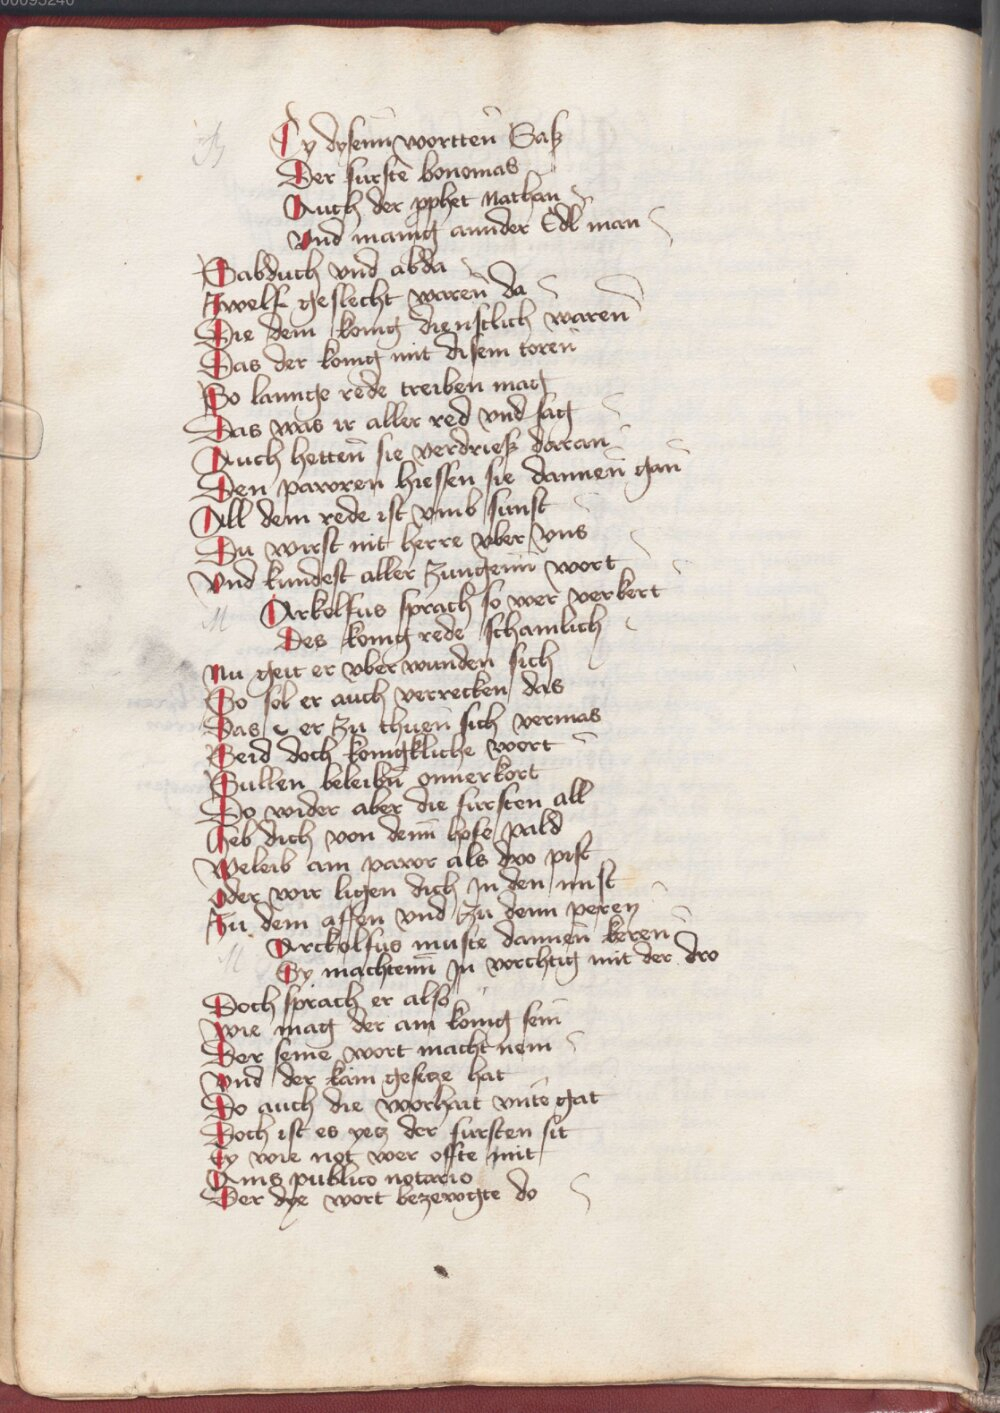 Py dysenn wortten Sasz
Der furste bonomas
Auch der pphet Nathan
Vnd manig annder Edl man
Sabduch vnd abda
Zwelf geslecht waren da
Die dem konig dienstlich waren
Das der konig mit disem toren
So lannge rede treiben mag
Das was ir aller red vnd sag
Auch hetten sie verdriesz daran
Den pawren hiessen sie dannen gan
All dem rede ist vmb sunst
Du wirst nit herre vber vns
Vnd kundest aller zungenn wort
Arkolfus sprach so wer verkert
Des konig rede schamlich
Nu geit er vberwunden sich
So sol er auch verrecken das
Das er zu thuen sich vermas
Seid doch konigkliche wort
Sullen beleibn onuerkort
Do wider aber die fursten all
Heb dich von denn hofe pald
Beleib am pawr als dw pist
Oder wir ligen dich In den mist
Zu dem affen vnd zu denn peren
Arckolfus muste dannen keren
Sy machtenn In vorchtig mit der dro
Doch sprach er also
Wie mag der ain konig sein
Der seine wort macht nein
Vnd der kain gesetze hat
Do auch die worhait vnte gat
Doch ist es yetz der fursten sit
Ey wie not wer offte mit
Ains publico notario
Der dye wort bezewgte do